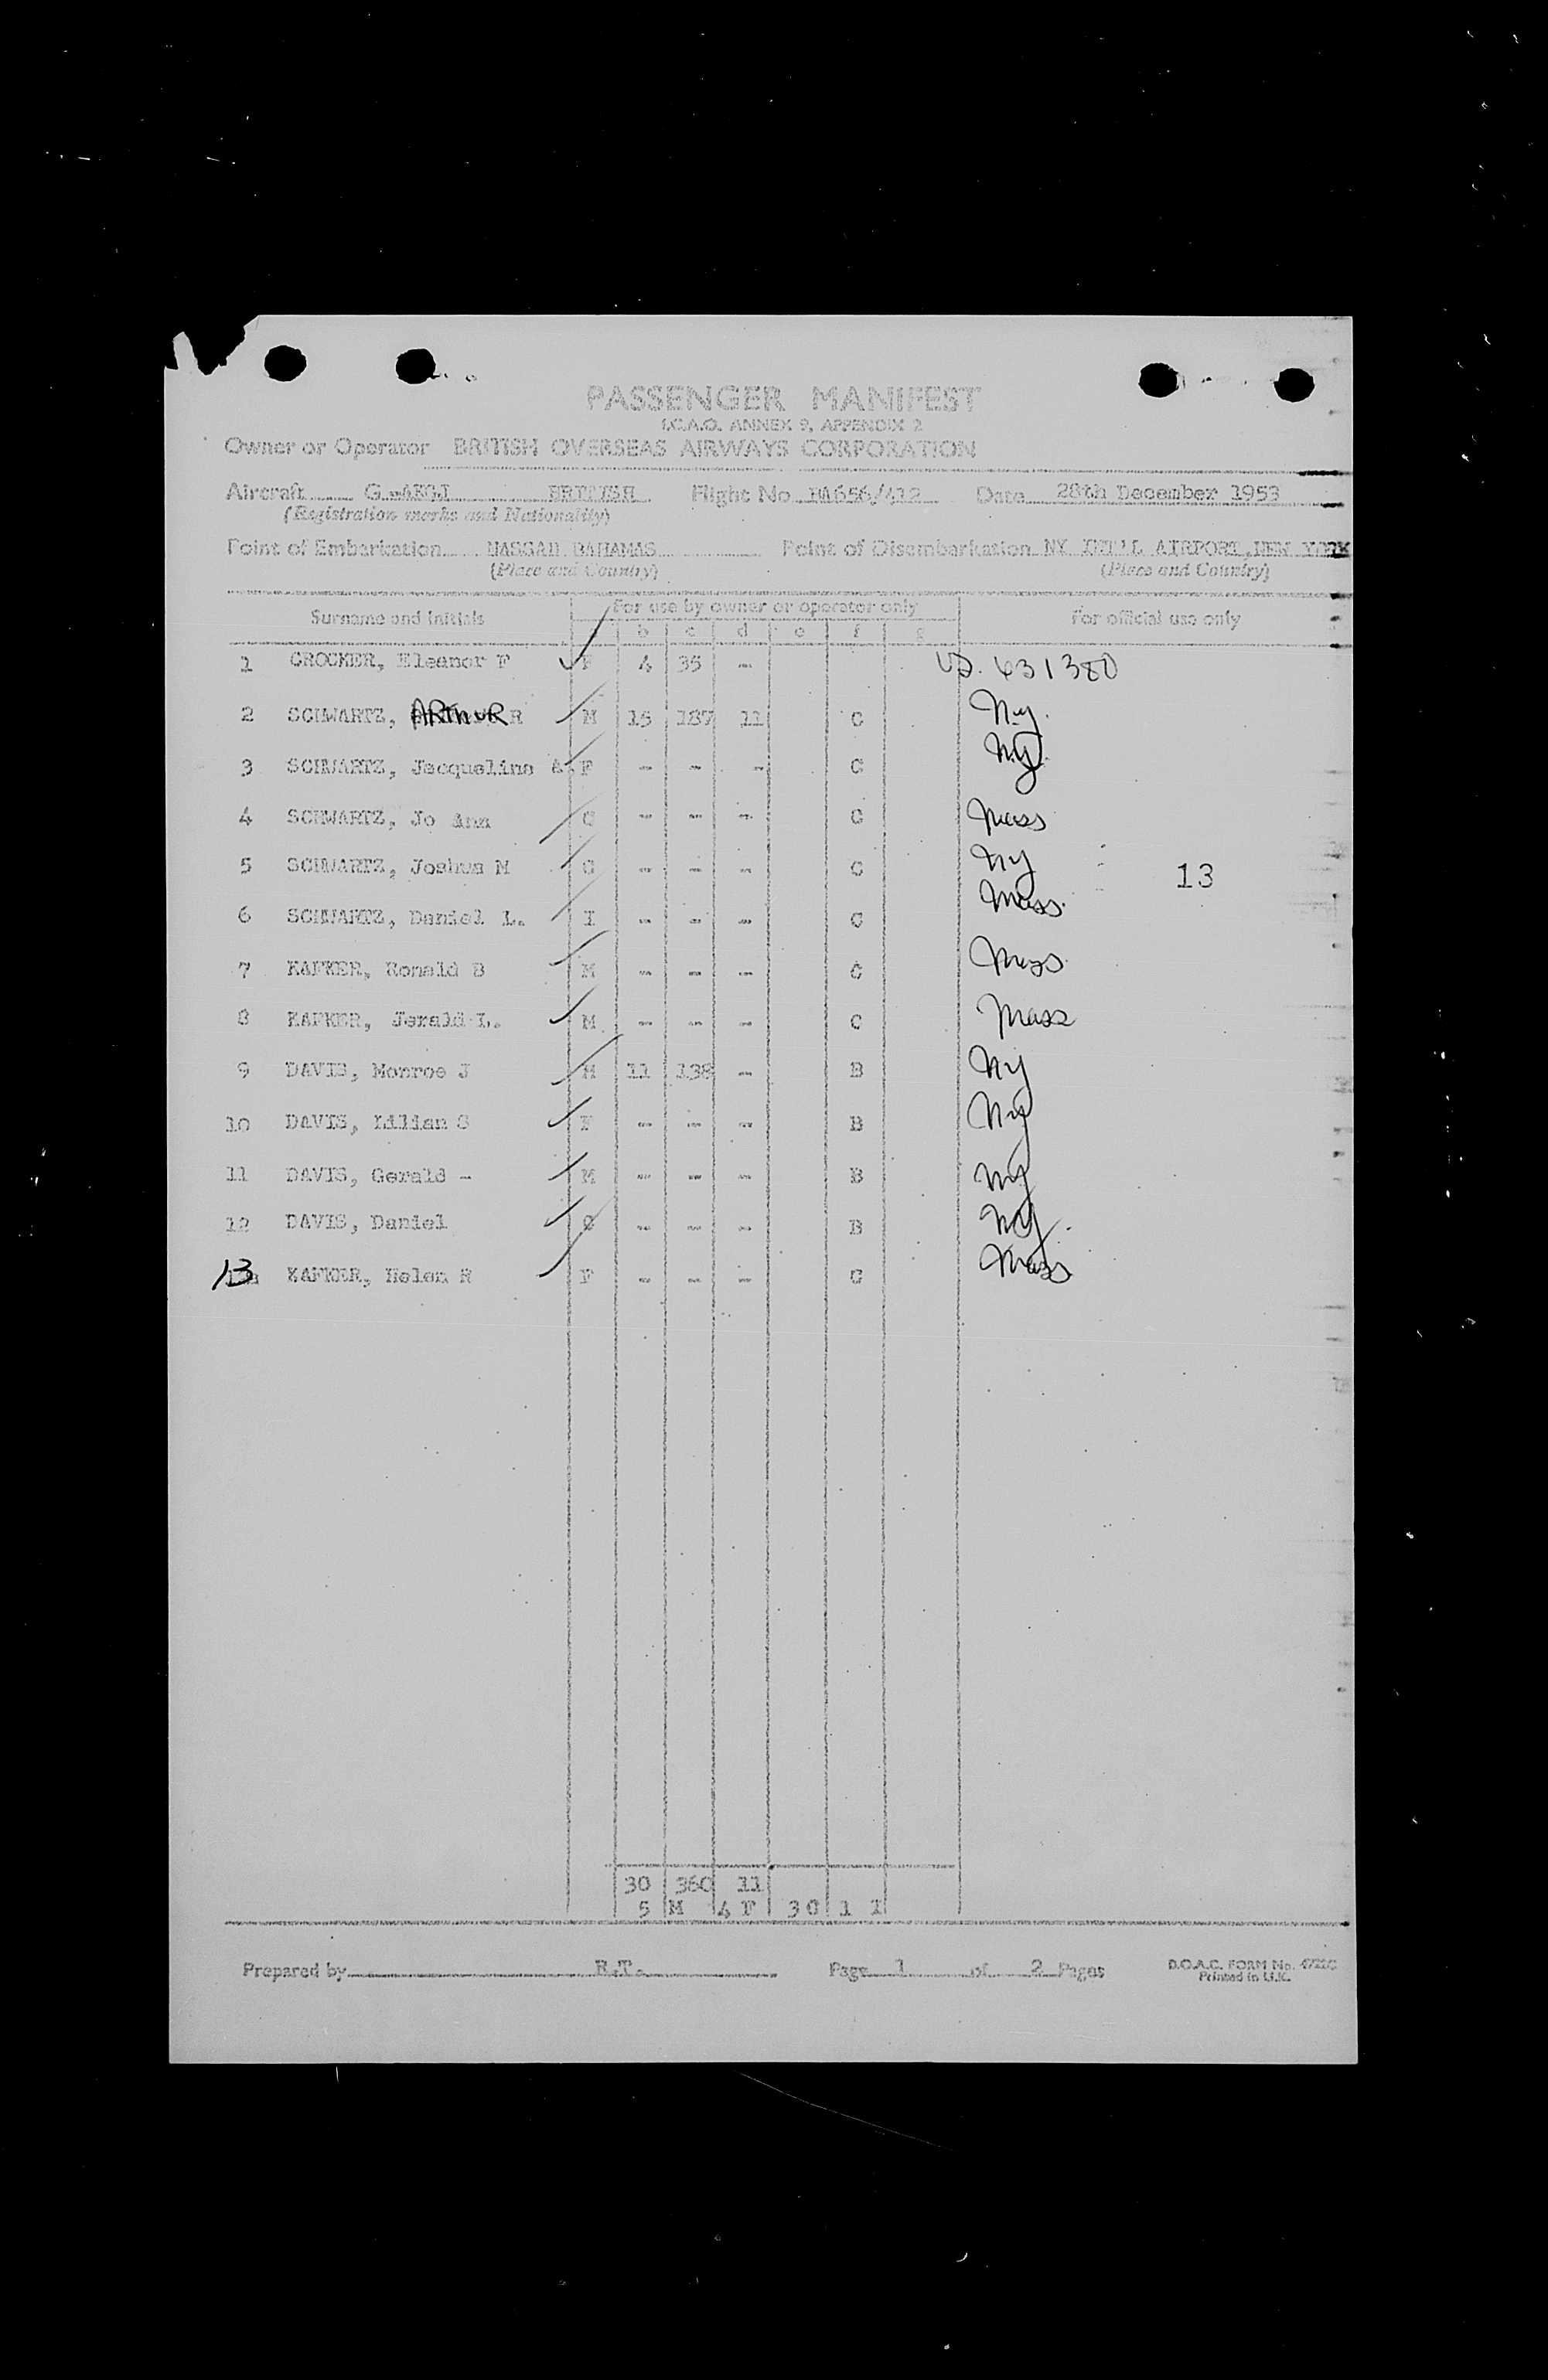 PASSENGER MANIFEST
I.C.A.O. ANNEX 9, APPENDIX 2
Owner or Operator BRITISH OVERSEAS AIRWAYS CORPORATION
Aircraft BRITISH Flight No. BA656/412 Date 28th December 1953
(Registration marks and Nationality)
Point of Embarkation NASSAU BAHAMAS Point of Disembarkation NY INT'L AIRPORT, NEW YORK
(Place and Country) (Place and Country)
Surname and Initials For use by owner or operator only For official use only
b c d e f g
1 CROCKER, Eleanor F F 4 35 - US. 431380
2 SCHWARTZ, ARTHUR R M 15 187 11 C Ny.
3 SCHWARTZ, Jacqueline F - - - C Ny.
4 SCHWARTZ, Jo Ann C - - - C Mass
5 SCHWARTZ, Joshua M C - - - C Ny 13
6 SCHWARTZ, Daniel L. I - - - C Mass.
7 KAFKER, Ronald B M - - - C Mass.
8 KAFKER, Jerald L. M - - - C Mass
9 DAVIS, Monroe J M 11 138 - B Ny
10 DAVIS, Lilian S F - - - B Ny
11 DAVIS, Gerald - M - - - B Ny
12 DAVIS, Daniel C - - - B Ny.
13 KAFKER, Helen R F - - - C Mass
30 360 11
5 M 4 F 3 C 1 I
Prepared by R.T. Page 1 of 2 Pages B.O.A.C. FORM No.
Printed in U.K.